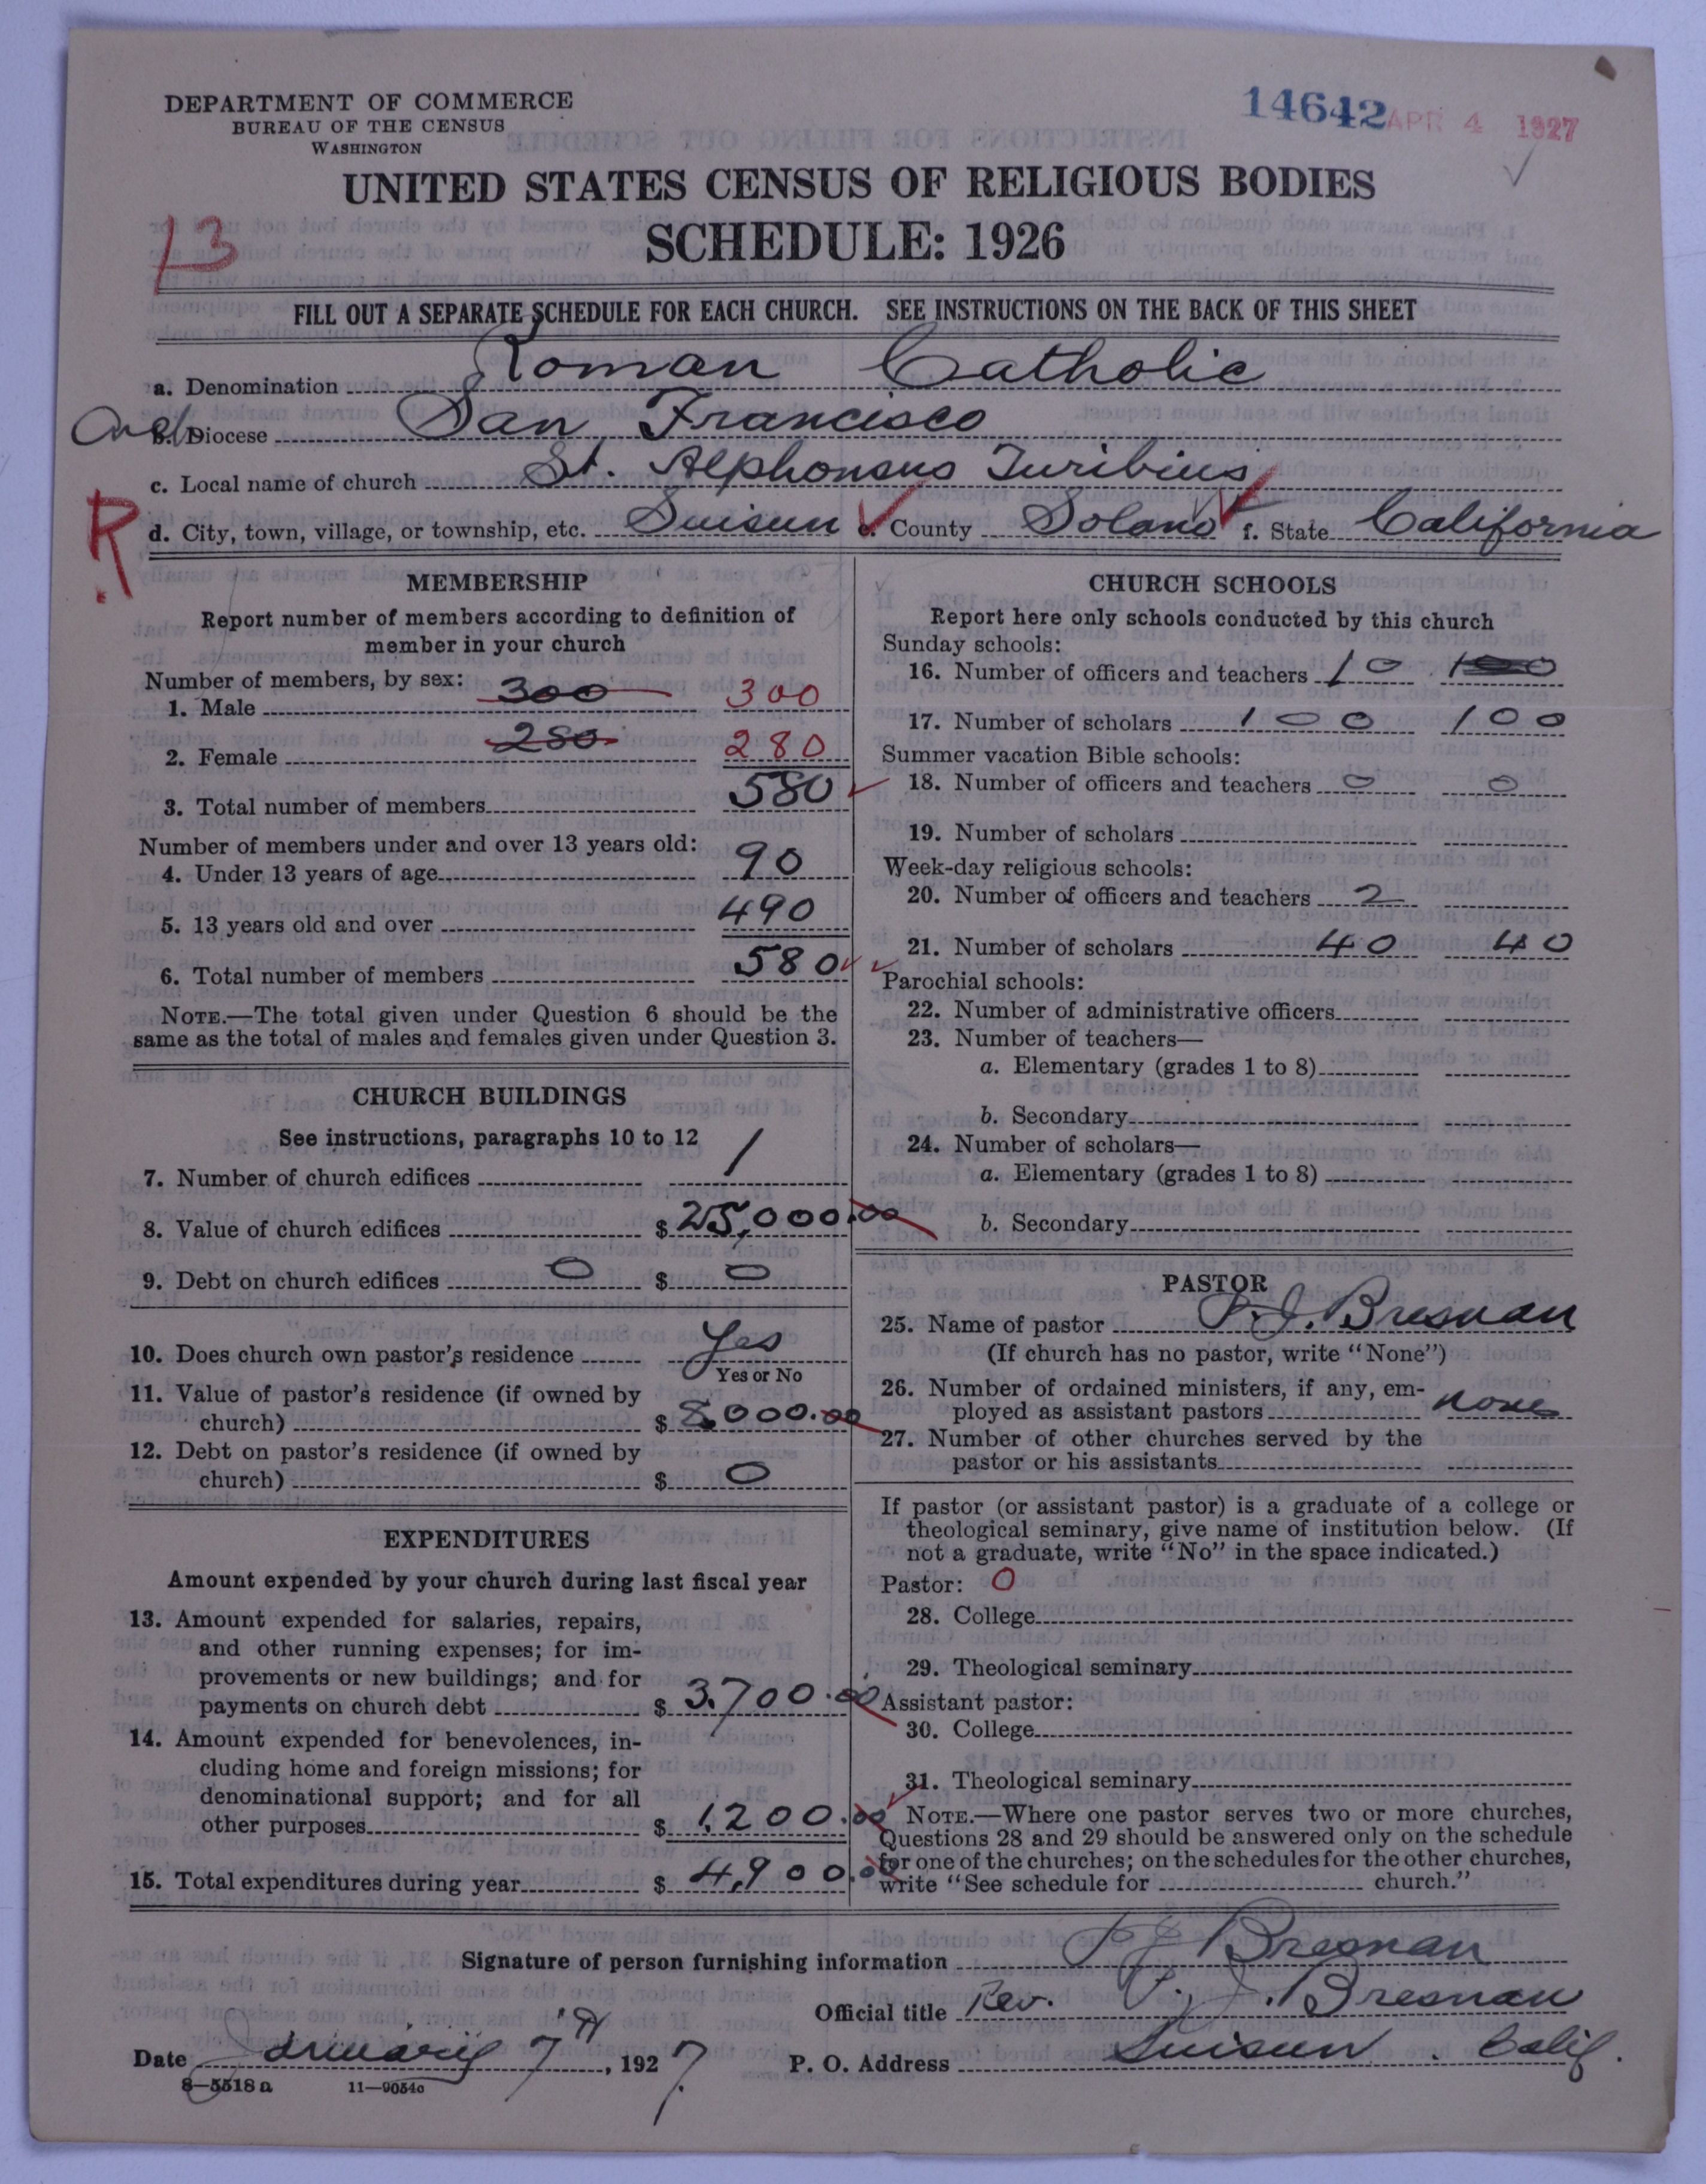 DEPARTMENT OF COMMERCE
BUREAU OF THE CENSUS
WASHINGTON
14642 APR 4 1927
UNITED STATES CENSUS OF RELIGIOUS BODIES
13
SCHEDULE: 1926
FILL OUT A SEPARATE SCHEDULE FOR EACH CHURCH. SEE INSTRUCTIONS ON THE BACK OF THIS SHEET
a. Denomination Roman Catholic
Arch b. Diocese San Francisco
c. Local name of church St. Alphonsus Turibius
R
d. City, town, village, or township, etc. Suisun e. County Solano f. State California
MEMBERSHIP
Report number of members according to definition of
member in your church
Number of members, by sex:
1. Male 300 300
2. Female 280 280
3. Total number of members 580
Number of members under and over 13 years old:
4. Under 13 years of age 90
5. 13 years old and over 490
6. Total number of members 580
NOTE.—The total given under Question 6 should be the
same as the total of males and females given under Question 3.
CHURCH BUILDINGS
See instructions, paragraphs 10 to 12
7. Number of church edifices 1
8. Value of church edifices $ 25,000.00
9. Debt on church edifices 0 $ 0
10. Does church own pastor's residence Yes
Yes or No
11. Value of pastor's residence (if owned by
church) $ 8,000.00
12. Debt on pastor's residence (if owned by
church) $ 0
EXPENDITURES
Amount expended by your church during last fiscal year
13. Amount expended for salaries, repairs,
and other running expenses; for im-
provements or new buildings; and for
payments on church debt $ 3,700.00
14. Amount expended for benevolences, in-
cluding home and foreign missions; for
denominational support; and for all
other purposes $ 1,200.00
15. Total expenditures during year $ 4,900.00
CHURCH SCHOOLS
Report here only schools conducted by this church
Sunday schools:
16. Number of officers and teachers 10
17. Number of scholars 100 100
Summer vacation Bible schools:
18. Number of officers and teachers 0 0
19. Number of scholars
Week-day religious schools:
20. Number of officers and teachers 2
21. Number of scholars 40 40
Parochial schools:
22. Number of administrative officers
23. Number of teachers—
a. Elementary (grades 1 to 8)
b. Secondary
24. Number of scholars—
a. Elementary (grades 1 to 8)
b. Secondary
PASTOR
25. Name of pastor P. J. Bresnan
(If church has no pastor, write "None")
26. Number of ordained ministers, if any, em-
ployed as assistant pastors none
27. Number of other churches served by the
pastor or his assistants
If pastor (or assistant pastor) is a graduate of a college or
theological seminary, give name of institution below. (If
not a graduate, write "No" in the space indicated.)
Pastor: 0
28. College
29. Theological seminary
Assistant pastor:
30. College
31. Theological seminary
NOTE.—Where one pastor serves two or more churches,
Questions 28 and 29 should be answered only on the schedule
for one of the churches; on the schedules for the other churches,
write "See schedule for church."
Signature of person furnishing information P J Bresnan
Official title Rev. P. J. Bresnan
Date January 7th, 1927. P. O. Address Suisun. Calif.
8—5518 a 11—9054c